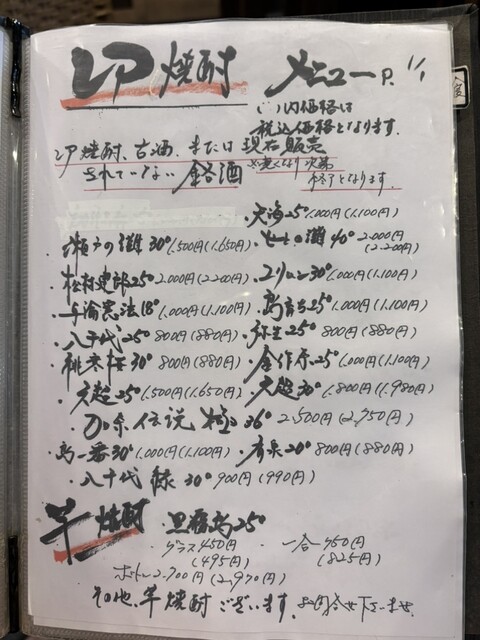 レア焼酎 メニューP. 1/1
( )内価格は
税込価格となります。
レア焼酎、古酒、または現在販売
されていない銘酒 无くなり次第
終了となります。
・天海25° 1.000円(1.100円)
・瀬戸の灘30° 1.500円(1.650円)
・せとの灘40° 2.000円
(2.200円)
・松村建郎25° 2.000円(2.200円)
・ユリムン30° 1.000円(1.100円)
・与論憲法18° 1.000円(1.100円)
・島育ち25° 1.000円(1.100円)
・八千代25° 800円(880円)
・弥生25° 800円(880円)
・30° 800円(880円)
・25° 1.000円(1.100円)
・天超25° 1.500円(1.650円)
・天超30° 1.800円(1.980円)
・加奈伝説 36° 2.500円(2.750円)
・島一番30° 1.000円(1.100円)
・20° 800円(880円)
・八千代 緑 30° 900円(990円)
芋焼酎 ・黒霧島25°
グラス450円
(495円)
一合750円
(825円)
ボトル2.700円(2.970円)
その他、芋焼酎ございます。お問合せ下さいませ